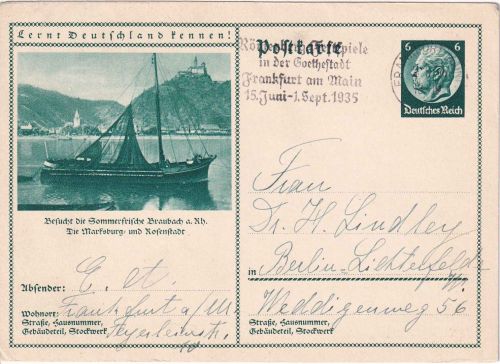 Lernt Deutschland kennen!
Postkarte
Römerberg-Festspiele
in der Goethestadt
Frankfurt am Main
15. Juni-1. Sept. 1935
6 6
Deutsches Reich
Besucht die Sommerfrische Braubach a. Rh.
Die Marksburg- und Rosenstadt
Absender:
Frankfurt a/M.
Wohnort:
Straße, Hausnummer,
Gebäudeteil, Stockwerk
Frau
Dr. H. Lindley
in Berlin-Lichterfelde
Weddigenweg 56
Straße, Hausnummer,
Gebäudeteil, Stockwerk